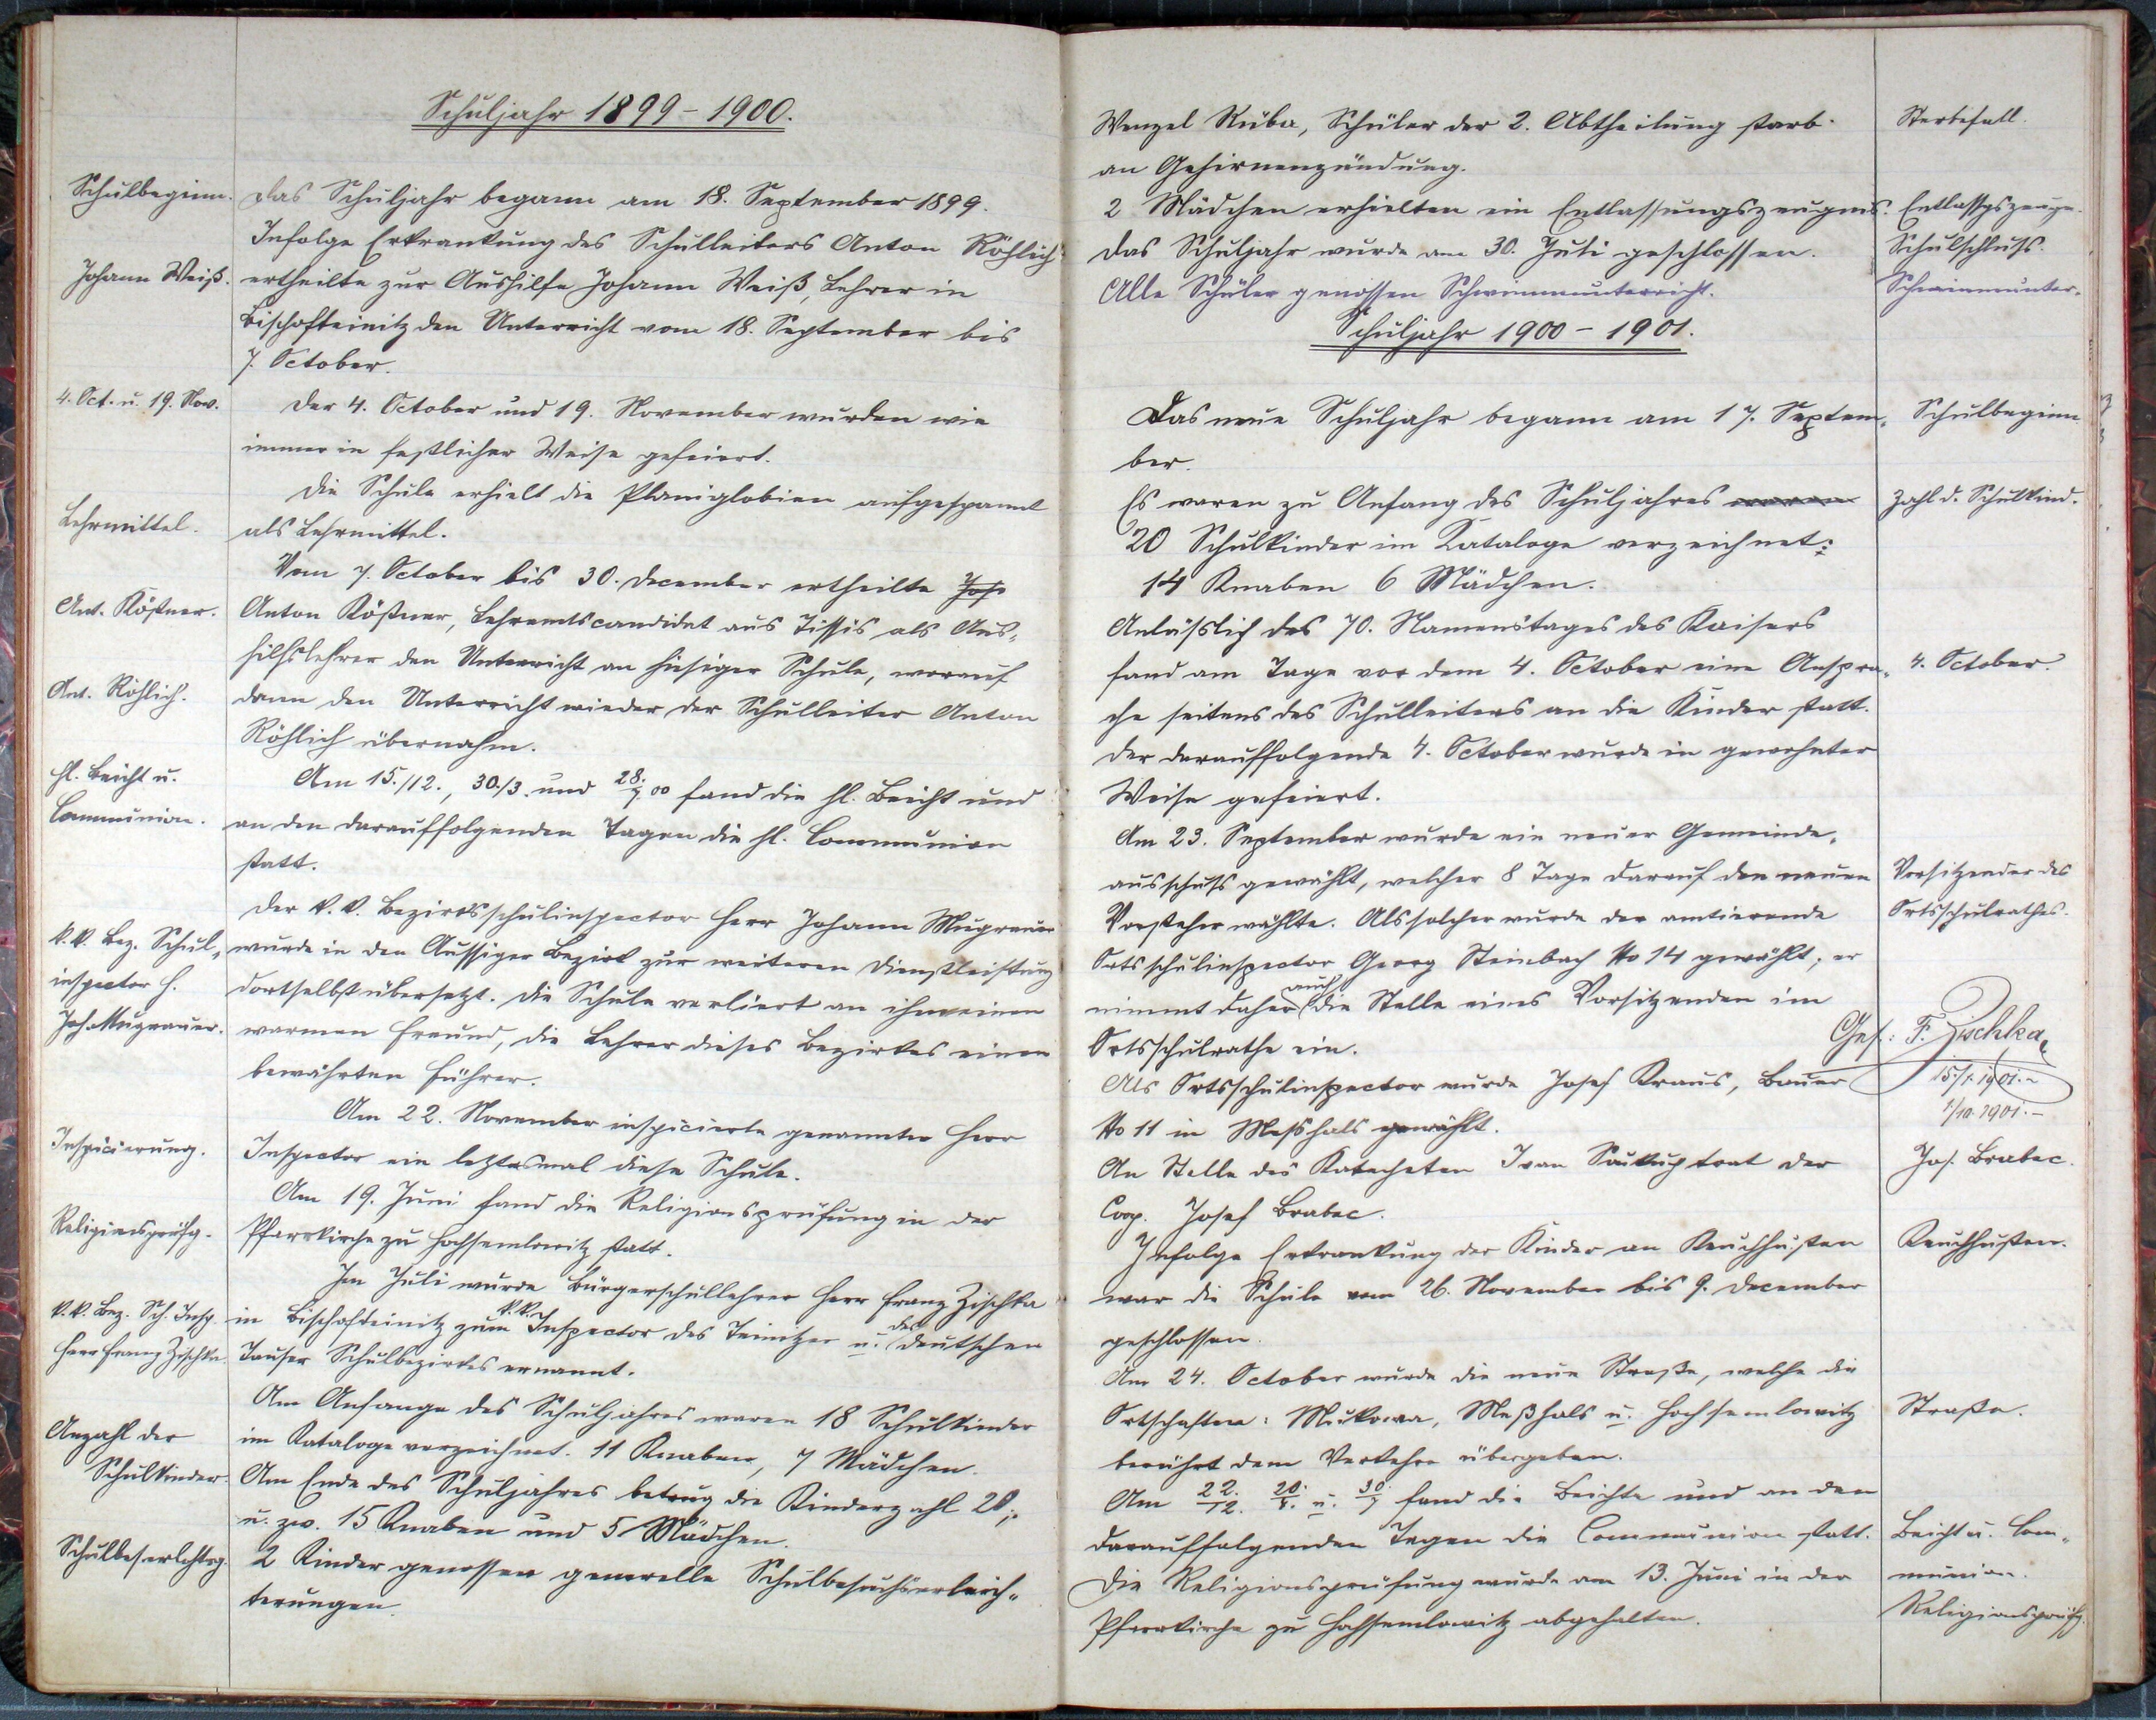 Schuljahr 1899-1900.
Schulbeginn.
Das Schuljahr begann am 18. September 1899.
Infolge Erkrankung des Schulleiters Anton Röhlich
Johann Weiß.
ertheilte zur Aushilfe Johann Weiß, Lehrer in
Bischofteinitz den Unterricht vom 18. September bis
7. October.
4. Oct. u. 19. Nov.
Der 4. October und 19. November wurden wie
immer in festlicher Weise gefeiert.
Die Schule erhielt die Planiglobien aufgespannt
Lehrmittel.
als Lehrmittel.
Vom 7. October bis 30. December ertheilte Jos
Ant. Kößner.
Anton Kößner, Lehramtscandidat aus Tissis als Aus-
hilfslehrer den Unterricht an hiesiger Schule, worauf
Ant. Röhlich.
dann den Unterricht wieder der Schulleiter Anton
Röhlich übernahm.
hl. Beicht u.
Am 15./12., 30./3. und 28./7.00 fand die hl. Beicht und
Communion.
an den darauffolgenden Tagen die hl. Communion
statt.
Der k.k. Bezirksschulinspector Herr Johann Mugrauer
k.k. Bez. Schul-
wurde in den Aussiger Bezirk zur weiteren Dienstleistung
inspector H.
dortselbst übersetzt. Die Schule verliert an ihm einen
Joh. Mugrauer.
warmen Freund, die Lehrer dieses Bezirkes einen
bewährten Führer.
Am 22. November inspicierte genannter Herr
Inspicierung.
Inspector ein letztesmal diese Schule.
Am 19. Juni fand die Religionsprüfung in der
Religionsprüfg.
Pfarrkirche zu Hochsemlowitz statt.
Im Juli wurde Bürgerschullehrer Herr Franz Zischka
k.k. Bez. Sch. Insp.
in Bischofteinitz zum k.k. Inspector des Teinitzer u. des deutschen
Herr Franz Zischka.
Tauser Schulbezirkes ernannt.
Am Anfange des Schuljahres waren 18 Schulkinder
Anzahl der
im Kataloge verzeichnet. 11 Knaben, 7 Mädchen.
Schulkinder.
Am Ende des Schuljahres betrug die Kinderzahl 20;
u. zw. 15 Knaben und 5 Mädchen.
Schulbes.erlchtrg.
2 Kinder genossen generelle Schulbesuchserleich-
terungen.
Wenzel Rüba, Schüler der 2. Abtheilung starb
Sterbefall.
an Gehirnenzündung.
2 Mädchen erhielten ein Entlassungszeugnis.
Entlassgszeugn.
Das Schuljahr wurde am 30. Juli geschlossen.
Schulschluss.
Alle Schüler genossen Schwimmunterricht.
Schwimmunter.
Schuljahr 1900-1901.
Das neue Schuljahr begann am 17. Septem-
Schulbeginn
ber.
Es waren zu Anfang des Schuljahres waren
Zahl d. Schulkind.
20 Schulkinder im Kataloge verzeichnet:
14 Knaben 6 Mädchen.
Anlässlich des 70. Namenstages des Kaisers
fand am Tage vor dem 4. October eine Anspra-
4. October.
che seitens des Schulleiters an die Kinder statt.
Der darauffolgende 4. October wurde in gewohnter
Weise gefeiert.
Am 23. September wurde ein neuer Gemeinde-
ausschuss gewählt, welcher 8 Tage darauf den neuen
Vorsitzender des
Vorsteher wählte. Als solcher wurde der amtierende
Ortsschulrathes.
Ortsschulinspector Georg Steinbach No 14 gewählt; er
nimmt daher auch die Stelle eines Vorsitzenden im
Ortsschulrathe ein.
Ges.: F. Zischka
Als Ortsschulinspector wurde Josef Kraus, Bauer
15./1. 1901.-
1/10. 1901.-
No 11 in Messhals gewählt.
An Stelle des Katecheten Ivan Soukup trat der
Jos. Brabec.
Coop. Josef Brabec.
Infolge Erkrankung der Kinder an Keuchhusten
Keuchhusten.
war die Schule vom 26. November bis 9. December
geschlossen.
Am 24. October wurde die neue Straße, welche die
Ortschaften: Mukowa, Meßhals u. Hochsemlowitz
Straße.
berührt dem Verkehre übergeben.
Am 22./12. 20. u. 30./7 fand die Beichte und an den
darauffolgenden Tagen die Communion statt.
Beicht u. Com-
Die Religionsprüfung wurde am 13. Juni in der
munion.
Pfarrkirche zu Hochsemlowitz abgehalten.
Religionsprüfg.